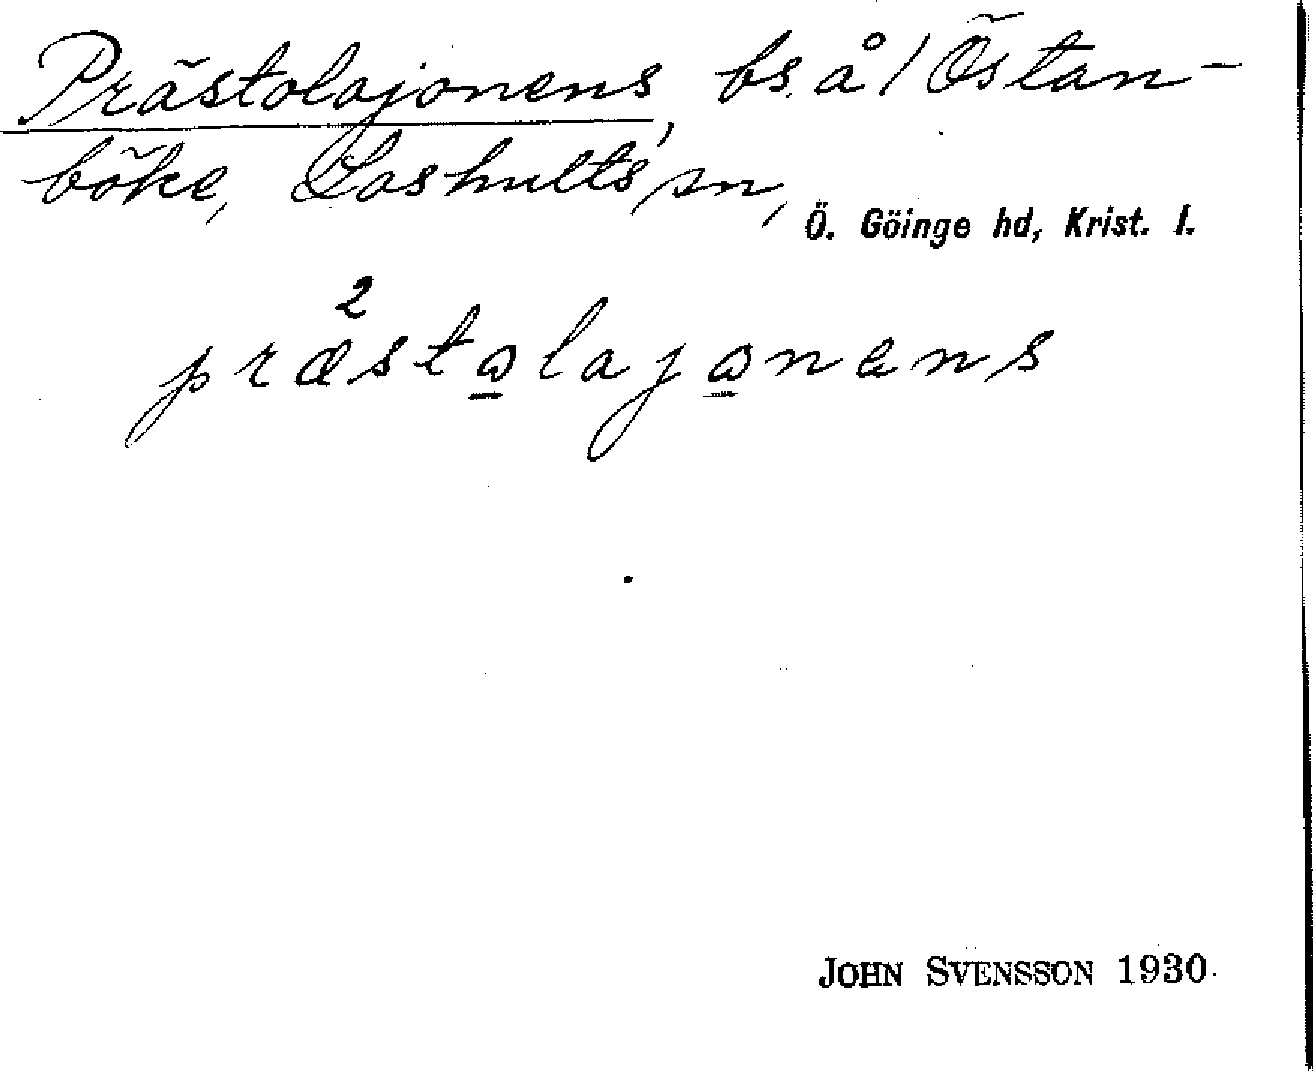 Prästolajonens, bs. å / Östan-
böke, Loshults sn,
Ö. Göinge hd, Krist. l.
2
præstωlajωnens
JOHN SVENSSON 1930.